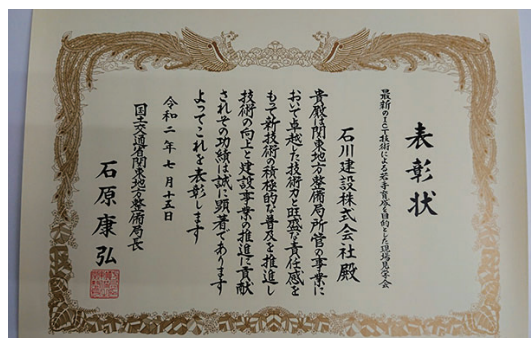 表彰状
最新のICT技術による若手育成を目的とした現場見学会
石川建設株式会社殿
貴殿は関東地方整備局所管の事業に
おいて卓越した技術力と旺盛な責任感を
もって新技術の積極的な普及を推進し
技術の向上と建設事業の推進に貢献
されその功績は誠に顕著であります
よってこれを表彰します
令和二年七月十五日
国土交通省関東地方整備局長
石原康弘